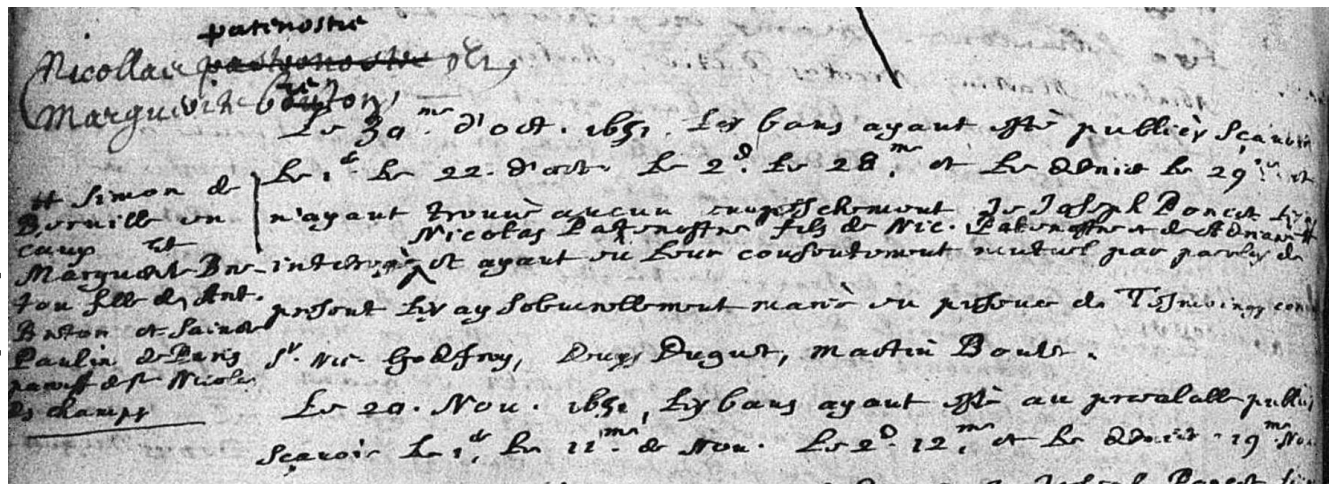 patenostre
Nicollas patenostre et
Marguerite breton
Le 30.me d'oct. 1651. Les bans ayant esté publiés sçavoir
le 1.er le 22. d'octo. le 2.d le 28.me et le dernier le 29.me et
n'ayant trouvé aucun empeschement Je Joseph Poncet les ay
Nicolas Patenostre fils de Nic. Patenostre et de Adriane
interrogé et ayant eu leur consentement mutuel par parolles de
present les ay solemnellement marié en presence de Tesmoings connus
Sr. Nic Godfroy, Denys Duguet, Martin Boult.
# Simon de
Berville en
caux et
Marguerite Bre-
ton fille de Ant.
Breton et Sainct
Paulin de Paris
paroiss de St Nicolas
des champs
Le 20. Nov. 1651, les bans ayant esté au prealable publiés
sçavoir le 1.er le 11.me de Nov. le 2.d 12.me et le dernier 19.me Nov
Joseph Poncet